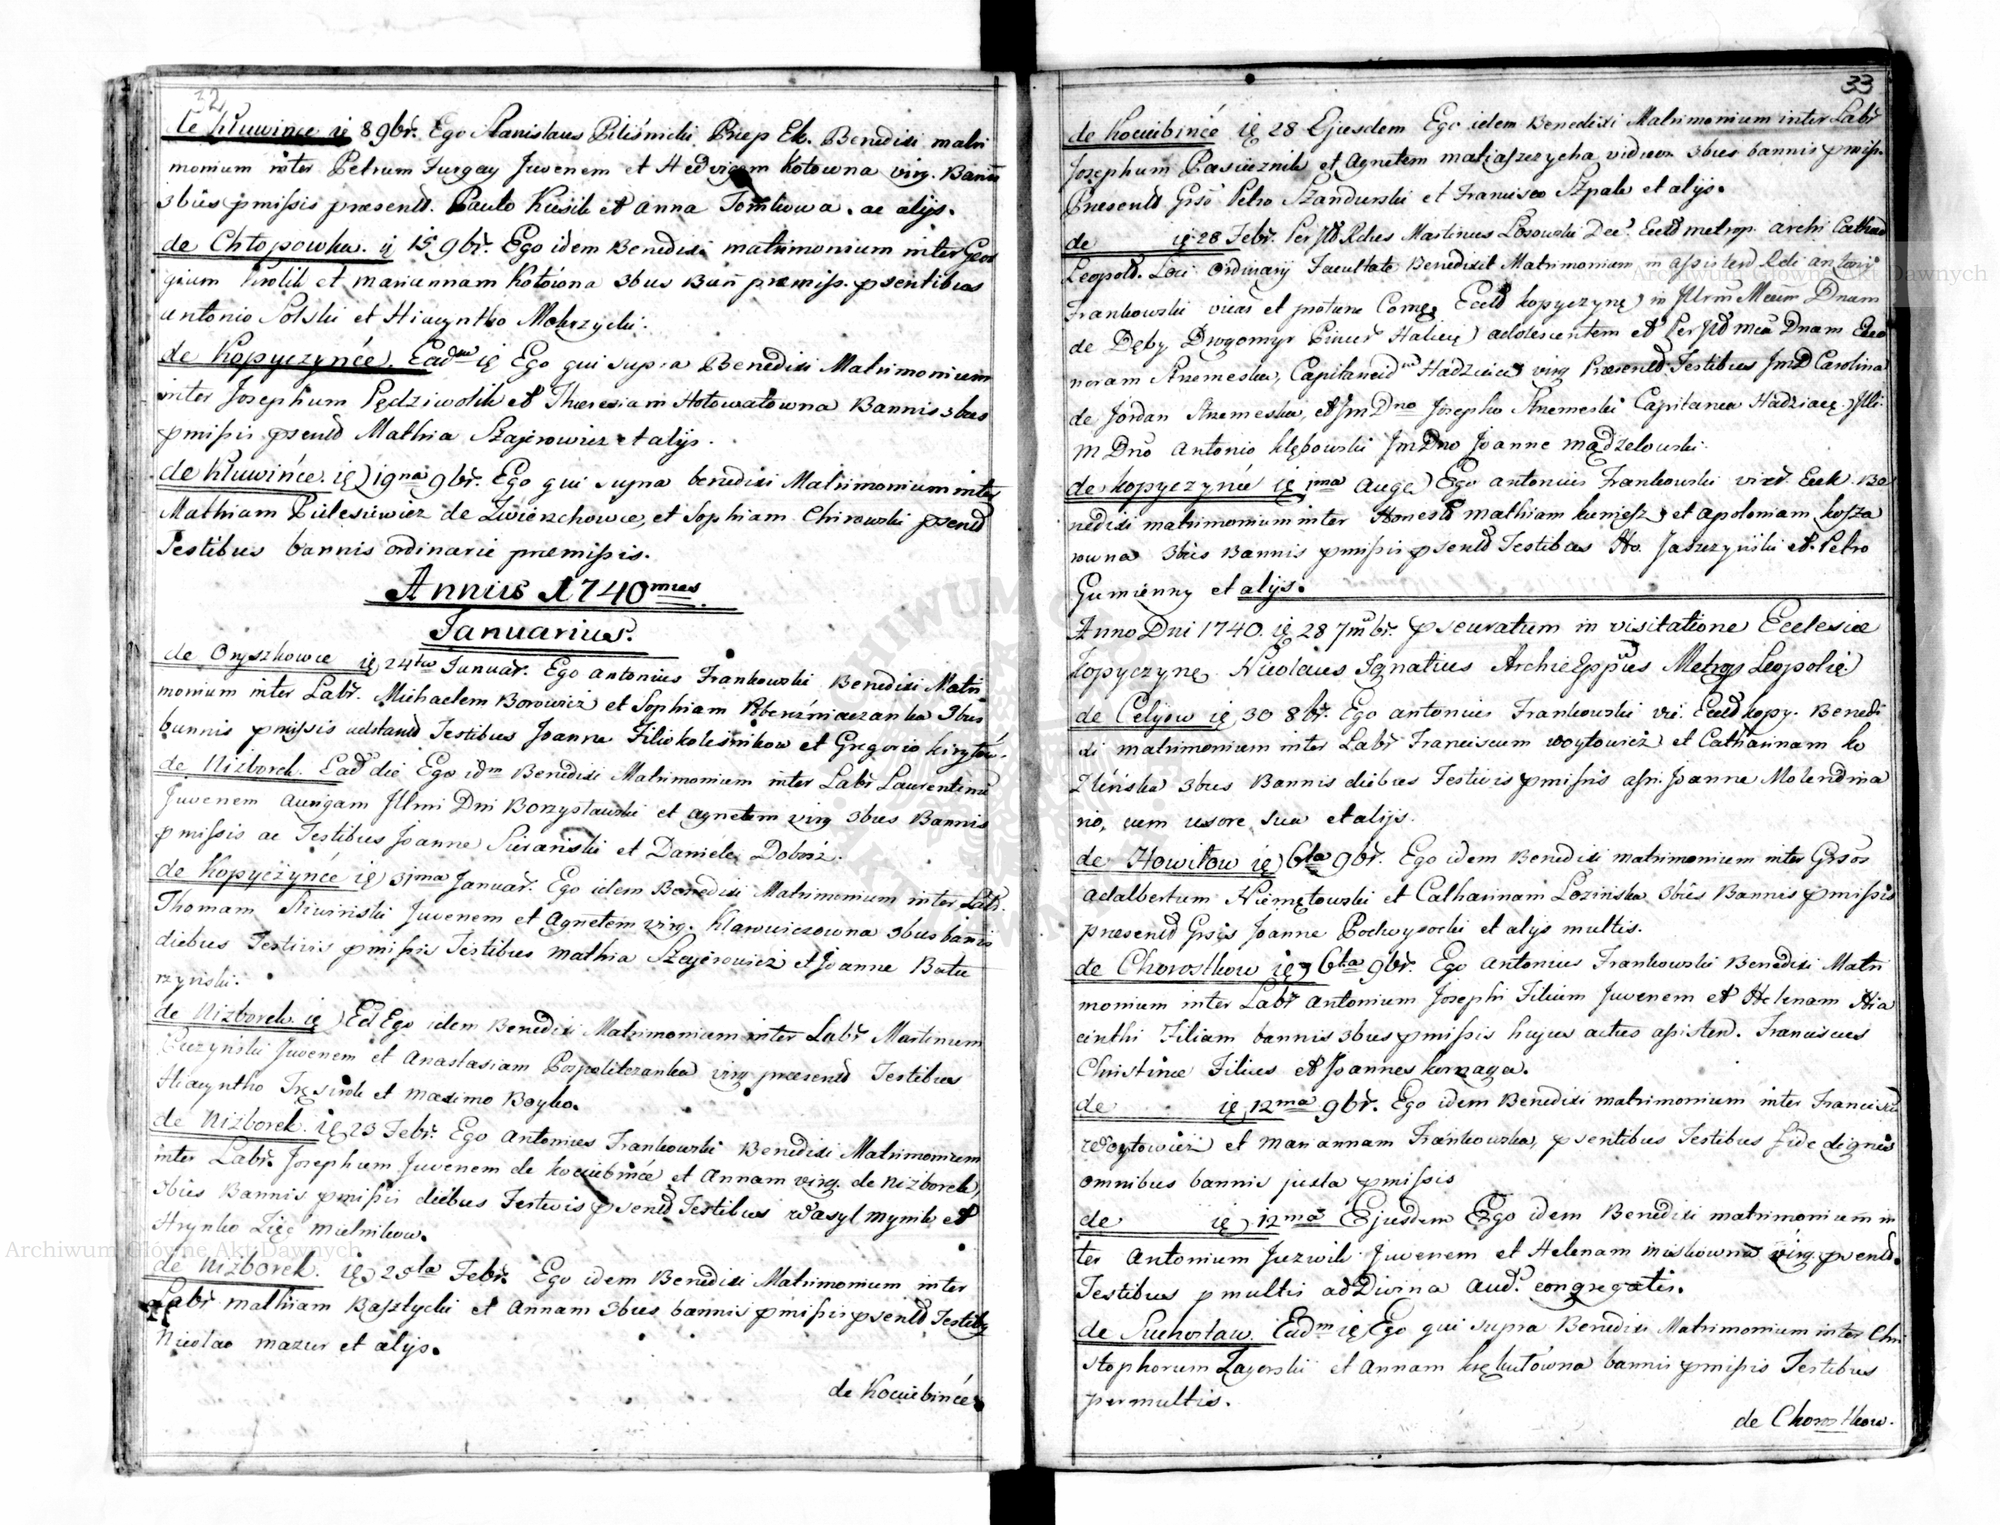 32
de Kluwince ię 8 9br̃. Ego Stanislaus Piliśnicki Præp Ek. Benedixi matri
monium inter Petrum Furgay Juvenem et Hedvigem Kotowna virg. Bann
3bus pmissis præsentd. Paulo Kusik et Anna Tomkowa. ac alijs.
de Chłopowka. ij 15 9br̃. Ego idem Benedixi matrimonium inter Geor
gium Krolik et mariannam Kotówna 3bus Bañ præmiss. psentibus
Antonio Solski et Hiacyntho Mokrzycki.
de Kopyczyńce. Eadem ię Ego qui supra Benedixi Matrimonium
inter Josephum Pędziwolik et Theresiam Hotowatowna Bannis 3bus
pmissis psentd Mathia Szajerowicz et alijs.
de Kluwińce. ię 19na 9br̃. Ego qui supra benedixi Matrimonium inter
Mathiam Bielesiewicz de Zwierzchowce et Sophiam Chirowski psentd
Testibus bannis ordinarie præmissis.
Annus 1740mus
Januarius.
de Oryszkowce ię 24to Januar̃. Ego Antonius Frankowski Benedixi Matri
monium inter Labr̃. Michaelem Borowicz et Sophiam 3bus
bannis pmissis adstantd Testibus Joanne Filio kolesnikow et Gregorio
de Nizborek. Ead die Ego idm Benedixi Matrimonium inter Labr̃ Laurentium
Juvenem Aurigam Illmi Dni Borzysławski et agnetem virg 3bus Bannis
pmissis ac Testibus Joanne Sieranski et Daniele Dobosz.
de Kopyczyńce ię 31ma Januar̃. Ego idem Benedixi Matrimonium inter Labr.
Thomam Siwinski Juvenem et Agnetem virg. Klawiczowna 3bus bannis
diebus Festivis pmissis Testibus Mathia Szajerowicz et Joanne Batu
rzynski.
de Nizborek ię Ed Ego idem Benedixi Matrimonium inter Labr̃ Martinum
Juvenem et Anastasiam Pospolitczanka virg præsentd Testibus
Hiacyntho et maximo Boyko.
de Nizborek. ię 23 Febr̃. Ego Antonius Frankowski Benedixi Matrimonium
inter Labr̃. Josephum Juvenem de kociubińce et Annam virg. de Nizborek,
3bus Bannis pmissis diebus Festivis psentd Testibus Wasyl Mynik et
Hrynko Zięć Mielnikow.
de Nizborek. ię 25ta Febr̃. Ego idem Benedixi Matrimonium inter
Labr̃ Mathiam Basztycki et Annam 3bus bannis pmissis psentd Testibg
Nicolao mazur et alijs.
de Kociubińce
33
de kociubińcé ię 28 Ejusdem Ego idem Benedixi Matrimonium inter Labr̃
Josephum Pasiecznik et Agnetem matiaszczycha viduam 3bus bannis pmiss.
Præsentd Grsō Petro Szandurski et Francisco Szpak et alijs.
de ię 28 Febr̃. Per Illd Rdus Martinus Losowski Dec. Eccld metrop. archi Cathed
Leopold. Loci Ordinarij Facultate Benedixit Matrimonium in assistend Rdi Antonij
Frankowski vicar et protunc Comę. Eccld kopyczynę in Illrm Mcum Dnam
de Dęby Drogomyr Pincer Halicę adolescentem et Per Illd Mcā Dnam Eleo
noram Strzemeska, Capitaneid Hadziacę virg Præsentd Testibus JmD Carolina
de Jordan Strzemeska, et Jm Dno Josepho Strzemeski Capitaneo Hadziacę. Illi
M Dño Antonio Kłębowski Jm Dno Joanne Mądzelowski.
de kopyczyńcé ię 1ma Augę Ego Antonius Frankowski vice. Eccl. Be
nedixi matrimonium inter Honestd mathiam kumesz et apoloniam kosza
rowna 3bus Bannis pmissis psentd Testibus Ho. Jaszczyński et Petro
Gumienny et alijs.
Anno Dni 1740. ię 28 7mbr̃. pseuratum in visitatione Ecclesiæ
kopyczynę. Nicolaus Ignatius ArchiEppus Metrop Leopolię
de Celijow ię 30 8br̃. Ego antonius Frankowski vic. Eccld kopy. Benedi
xi matrimonium inter Labr̃ Franciscum woytowicz et Catharinam ko
Zlińska 3bus Bannis diebus Festivis pmissis asn. Joanne Molendina
rio, cum uxore sua et alijs.
de Howiłow ię 6ta 9br̃. Ego idem Benedixi matrimonium inter Grsos
Adalbertum Niemętowski et Catharinam Lozinska 3bus Bannis pmissis
præsentd Grsis Joanne Podwysocki et alijs multis.
de Chorostkow ię 6ta 9br̃. Ego Antonius Frankowski Benedixi Matri
monium inter Labr̃ Antonium Josephi Filium Juvenem et Helenam Hia
cinthi Filiam bannis 3bus pmissis hujus actus assistend. Franciscus
Christinæ Filius et Joannes kernaga.
de ię 12ma 9br̃. Ego idem Benedixi matrimonium inter Franciscu
Woytowicz et Mariannam Frankowska, psentibus Testibus fide dignis
omnibus bannis juxta pmissis
de ię 12ma Ejusdem Ego idem Benedixi matrimonium in
ter Antonium Juzwik Juvenem et Helenam Muskowna virg. psentd.
Testibus pmultis ad Divina Aud. congregatis.
de Suchostaw. Eadm ię Ego qui supra Benedixi Matrimonium inter Chri
stophorum Zagorski et Annam krękutówna bannis pmissis Testibus
permultis.
de Chorostkow.
Archiwum Główne Akt Dawnych
Archiwum Główne Akt Dawnych